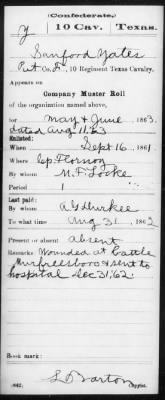 (Confederate.)
Y 10 Cav. Texas.
Sanford Yates
Pvt Co. , 10 Regiment Texas Cavalry.
Appears on
Company Muster Roll
of the organization named above,
for May & June, 1863.
dated Aug 11, 63
Enlisted:
When Sept 16, 1861
Where Cp. Flornoy
By whom M. F. Locke
Period 1
Last paid:
By whom A G Durkee
To what time Aug 31, 1862
Present or absent absent
Remarks: Wounded at battle
Murfreesboro & sent to
hospital Dec 31, 62.
Book mark:
(642)
L D Barton
Copyist.